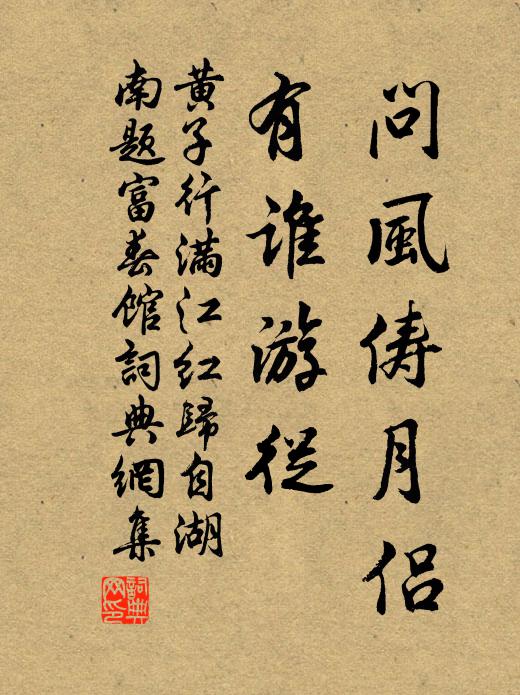 問風儔月侶
有誰游從
黃子行滿江紅歸自湖
南題富春館詞典網集
詞典
网印